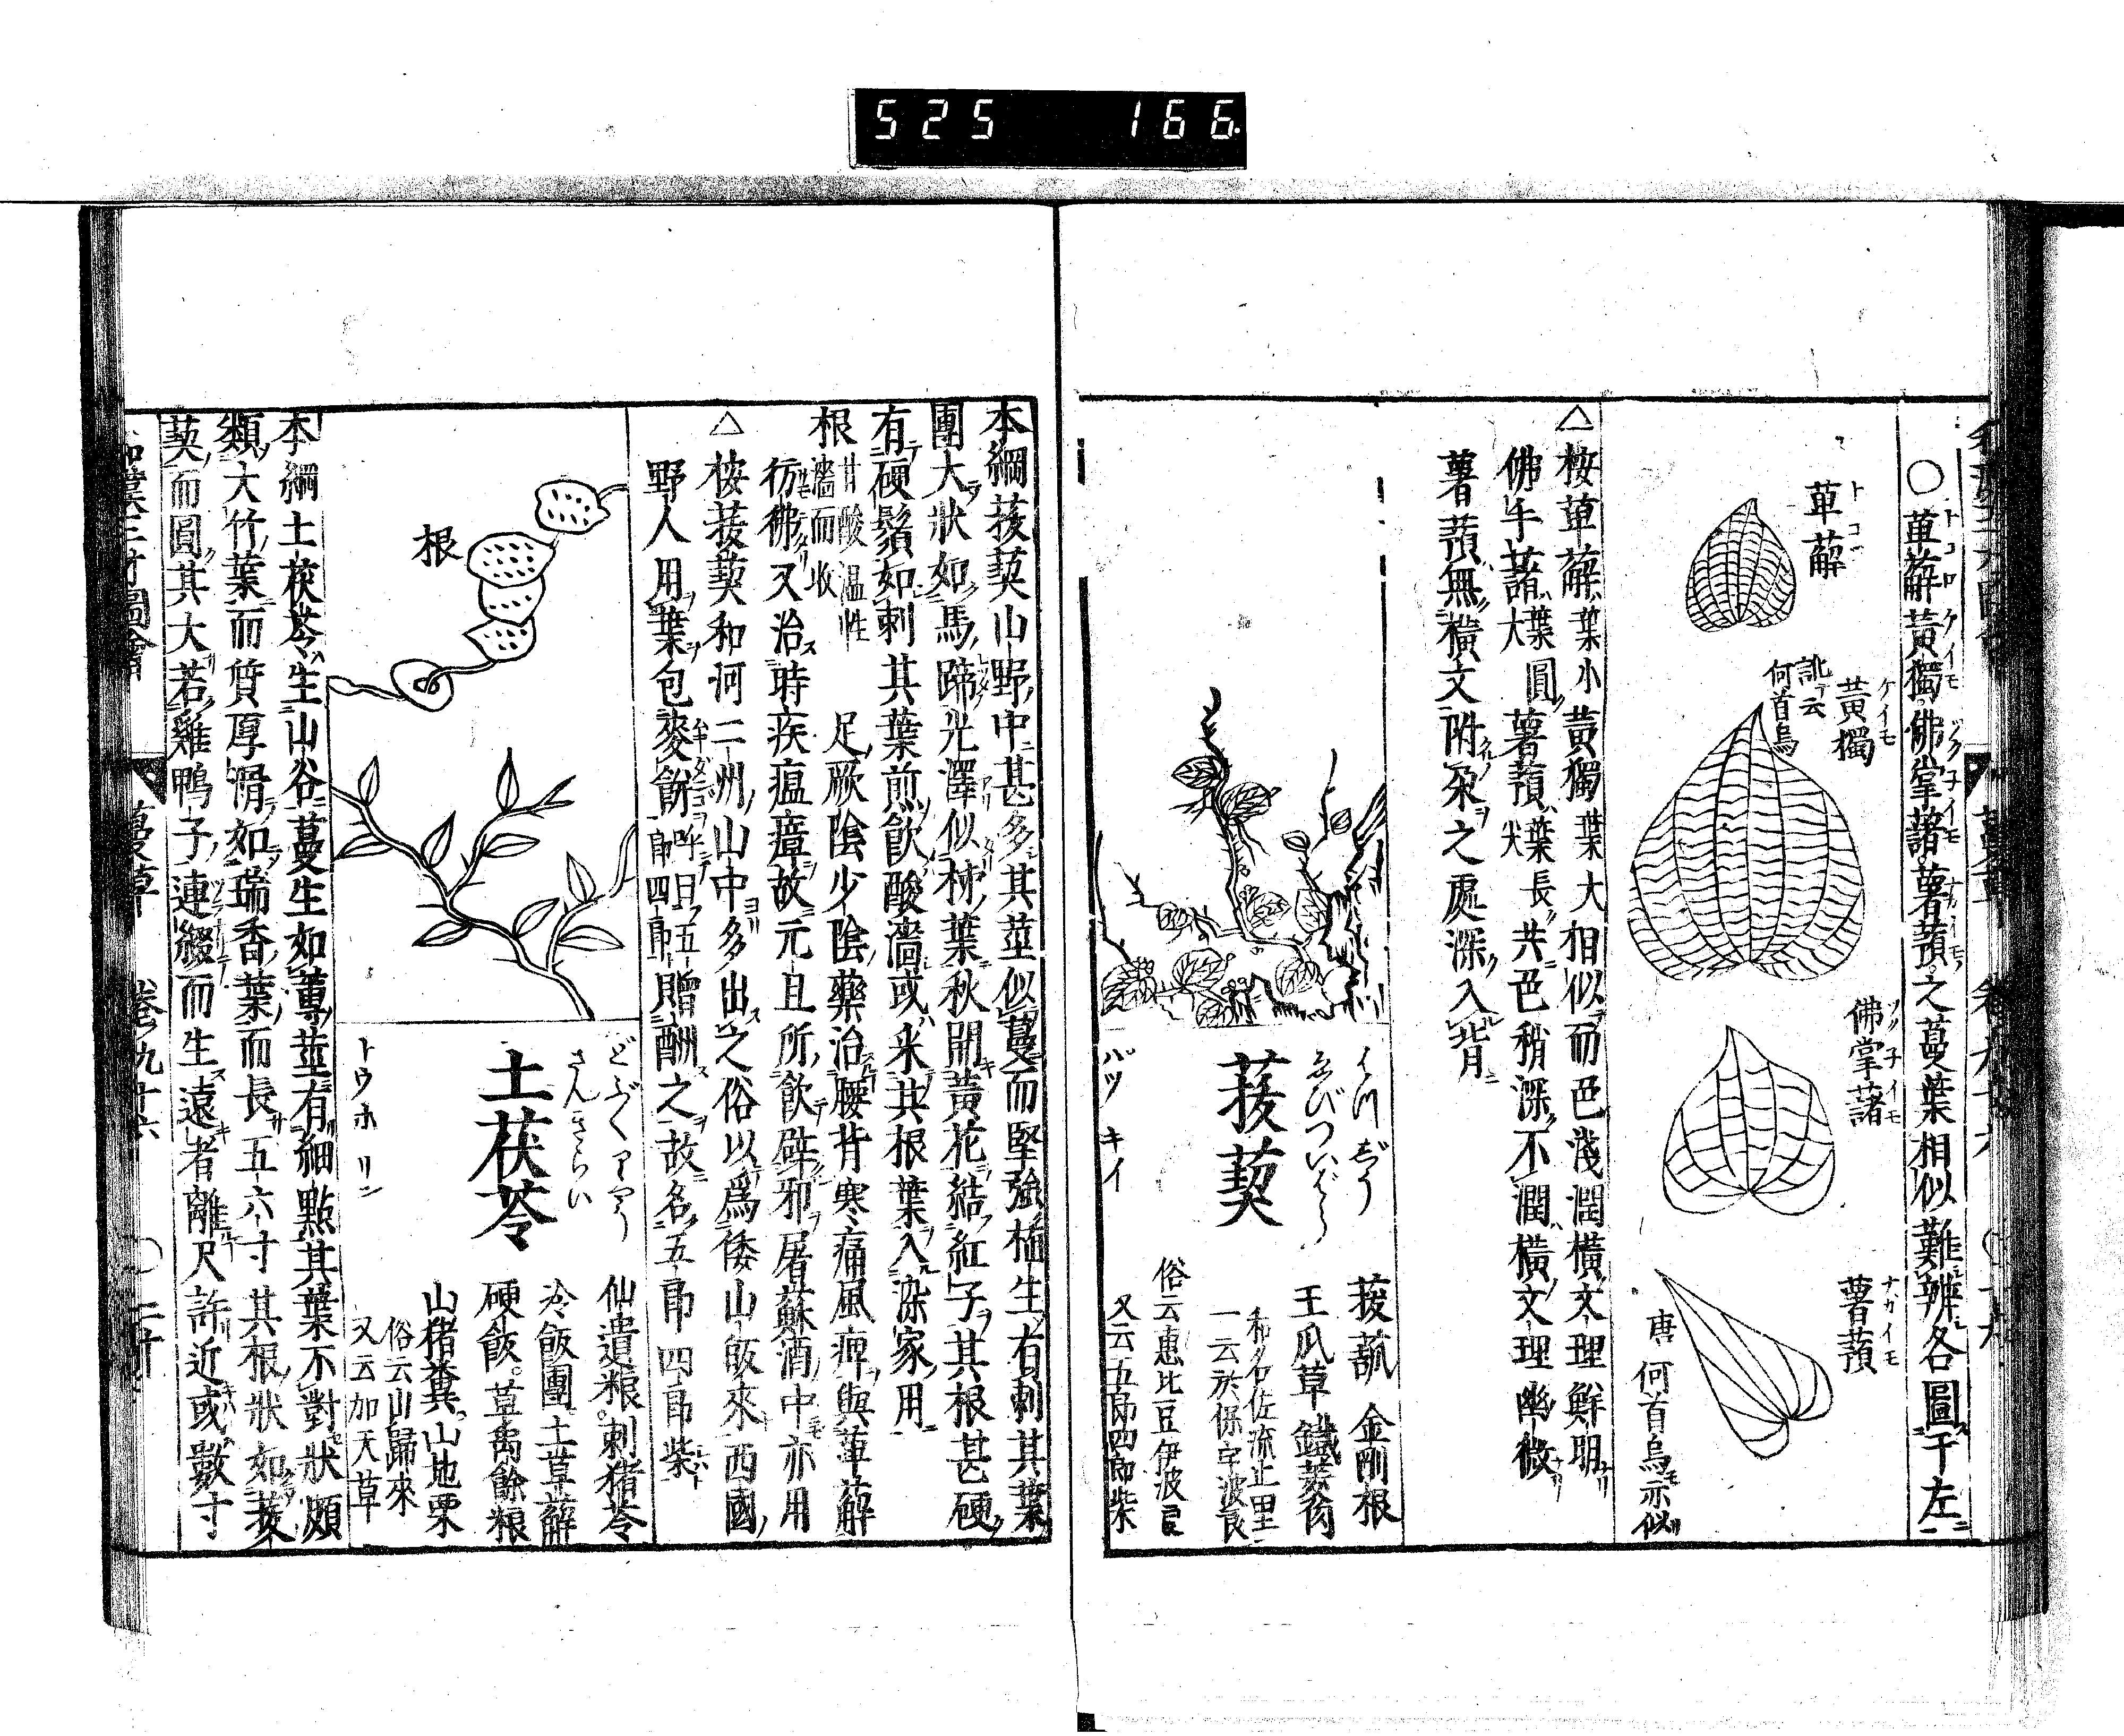 525 166
〇萆薢黃獨佛掌藷薯蕷之蔓葉相似難辨各圖于左
トコロ ケイモ ツクネイモ ナカイモ
萆薢
トコロ
黃獨
ケイモ
訛云
何首烏
佛掌藷
ツクネイモ
薯蕷
ナカイモ
唐何首烏亦似
△按萆薢葉小黃獨葉大相似而色淺潤橫文理鮮明
佛手藷葉圓大薯蕷葉長尖共色稍深不潤橫文理幽微
薯蕷無橫文附朶之處深入背
菝葜
ゑびついばら
バツ キイ
菝𦵒 金剛根
王瓜草 鐵菱角
和名佐流止里
一云於保宇波良
俗云惠比豆伊波良
又云五郎四郎柴
本綱菝葜山野中甚多其莖似蔓而堅強植生有刺其葉
團大狀如馬蹄光澤似柿葉秋開黃花結紅子其根甚硬
有硬鬚如刺其葉煎飲酸濇或采其根葉入染家用
根 甘酸温性
濇而收
足厥陰少陰藥治腰背寒痛風痺與萆薢
彷彿又治時疾瘟瘴故元旦所飲辟邪屠蘇酒中亦用
△按菝葜和河二州山中多出之俗以爲倭山皈來西國
野人用葉包麥餅呼曰五郎四郎贈酬之故名五郎四郎柴
根
土茯苓
どぶくりやう
さんきらい
トウホ リン
仙遺粮 刺猪苓
冷飯團 土萆薢
硬飯 草禹餘粮
山猪糞 山地栗
俗云山歸來
又云加天草
本綱土茯苓生山谷蔓生如蓴莖有細點其葉不對狀頗
類大竹葉而質厚滑如瑞香葉而長五六寸其根狀如菝
葜而圓其大若雞鴨子連綴而生遠者離尺許近或數寸
和漢三才圖會 蔓草 卷九十六 〇二十